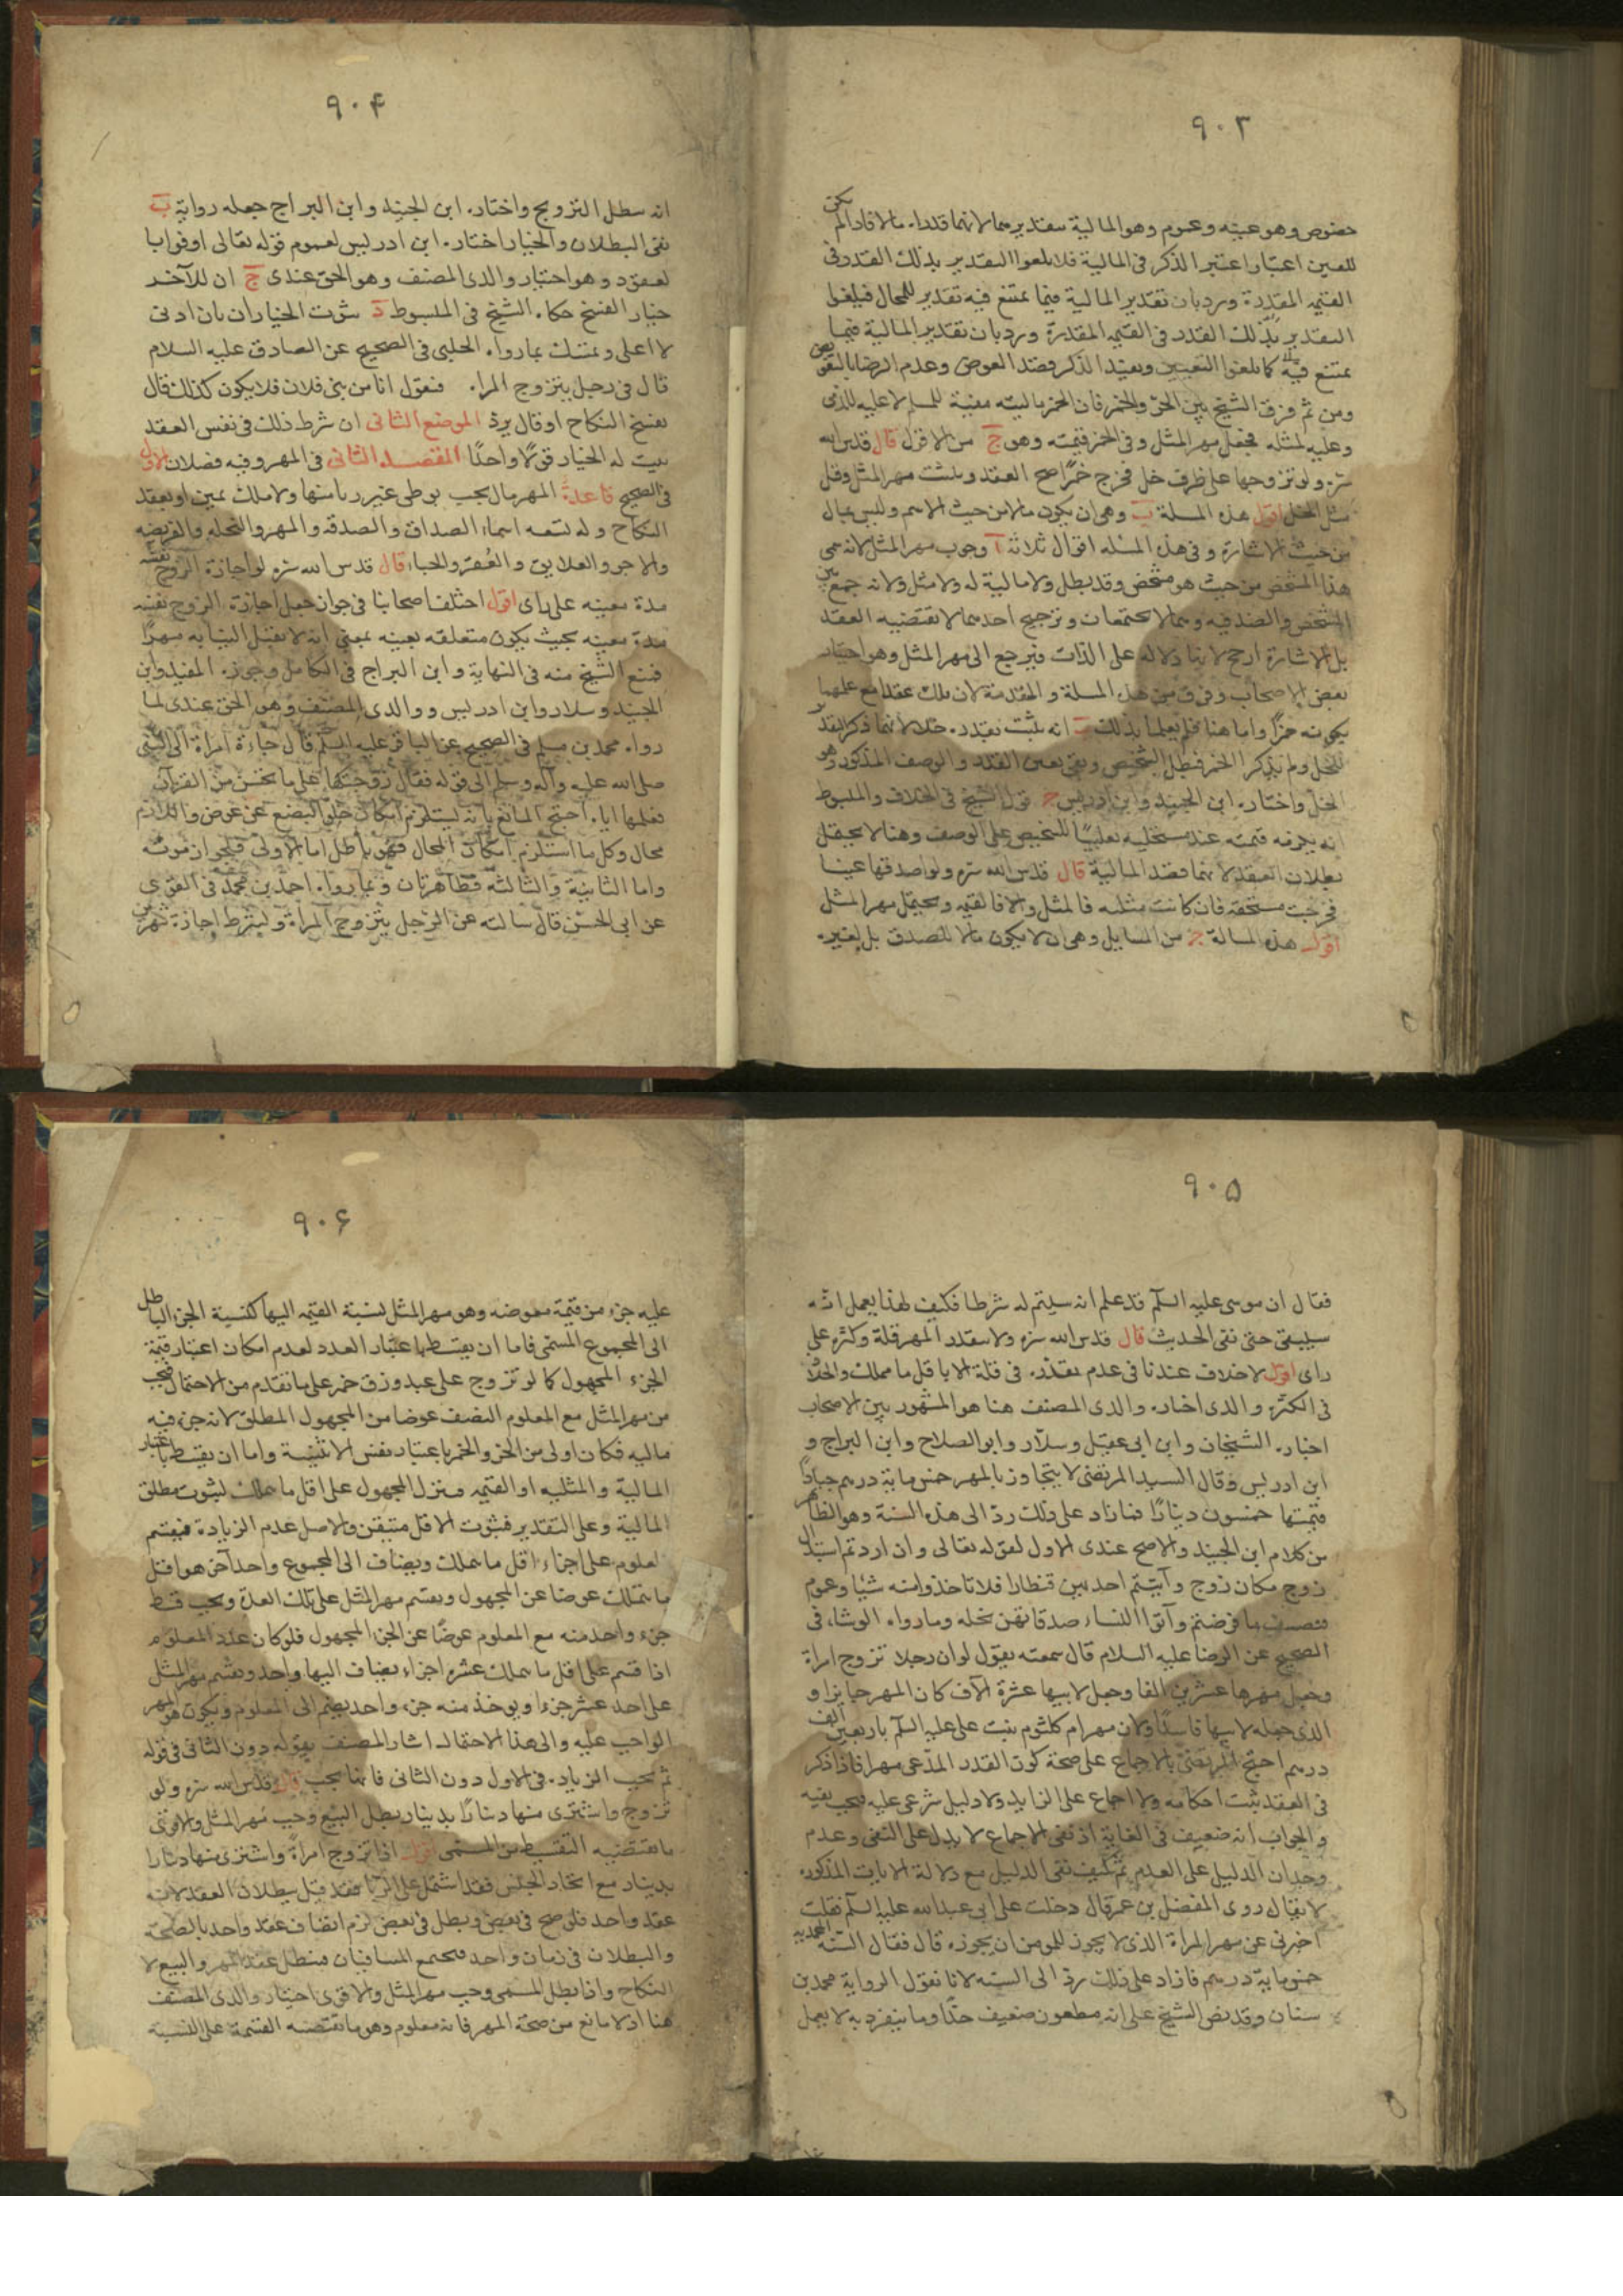 ٩٠٣
خصوص وهو عينه وعموم وهو المالية بتقديرهما لانهما قدراه مالا فاذا لم يكن
للعين اعتبار اعتبر الذكر في المالية فلا يلغوا التقدير بذلك القدر في
القيمة المقدرة ورد بان تقدير المالية فيما يمتنع فيه تقدير للمحال فيلغوا
التقدير بذلك القدر في القيمة المقدرة ورد بان تقدير المالية فيما
يمتنع فيه كما يلغوا التعيين وبعيد الذكر قصد العوض وعدم الرضا بالتفويض
ومن ثم فرق الشيخ بين الحر والخمر فان الخمر ماليته معينة للمسلم لا عليه للذمي
وعليه لمثله فجعل مهر المثل وفي الخمر قيمته وهو ج من الاقوال قال قدس الله
سره ولو تزوجها على ظرف خل فخرج خمرا صح العقد ويثبت مهر المثل وقيل
مثل الخل اقول هذه المسلة ب وهي ان يكون مالا من حيث الاسم وليس بمال
من حيث الاشارة وفي هذه المسئله اقوال ثلاثة ا وجوب مهر المثل لانه سمى
هذا المشخص من حيث هو مشخص وقد بطل ولا مالية له ولا مثل ولانه جمع بين
المشخص والصدفيه وهما لا يجتمعان وترجيح احدهما لا تقتضيه العقد
بل الاشارة ارجح لانها دلاله على الذات فيرجع الى مهر المثل وهو اختيار
بعض الاصحاب وفرق بين هذه المسلة و المقدمة لان تلك عقدا مع علمهما
بكونه خمرا واما هنا فلم يعلما بذلك ب انه يثبت بقدره خلا لانهما ذكرا بقدر
الخل ولم يذكرا الخمر فبطل الشخيص وبقي يعين القدر والوصف المذكور وهو
الخل واختاره ابن الجنيد وابن ادريس ج قول الشيخ في الخلاف والمبسوط
انه يلزمه قيمته عند مستحليه تغليبا للشخيص على الوصف وهنا لا يحتمل
بطلان العقد لانهما قصدا المالية قال قدس الله سره ولو اصدقها عينا
فخرجت مستحقه فان كانت مثليه فالمثل والا فالقيمه ويحتمل مهر المثل
اقول هذه المسالة ج من المسايل وهي ان لا يكون مالا للمصدق بل لغيره
٩٠٤
انه سطل التزويج واختاره ابن الجنيد وابن البراج جعله رواية ب
نفى البطلان والخيار اختاره ابن ادريس لعموم قوله تعالى اوفوا با
لعقود وهو اختيار والدى المصنف وهو الحق عندى ج ان للآخر
خيار الفسخ حكاه الشيخ فى المبسوط د ثبوت الخيار ان بان ادنى
لا اعلى وتمسك بما رواه الحلبى فى الصحيح عن الصادق عليه السلام
قال فى رجل يتزوج المراه فتقول انا من بنى فلان فلا يكون كذلك قال
يفسخ النكاح او قال يرد الموضع الثانى ان شرط ذلك فى نفس العقد
يثبت له الخيار قولا واحدا المقصد الثانى فى المهر وفيه فصلان الاول
فى الصحيح قاعدة المهر مال يجب بوطى غير زنا منها ولا ملك يمين او بعقد
النكاح وله تسعه اسماء الصداق والصدقه والمهر والنحله والفريضه
والاجر والعلايق والعقر والحباء قال قدس الله سره لو اجازة الزوج نفسه
مدة معينه على راى اقول اختلف اصحابنا فى جواز جعل اجازة الزوج نفسه
مدة معينه بحيث يكون متعلقه بعينه بمعنى انه لا يقبل النيابه مهرا
فمنع الشيخ منه فى النهاية وابن البراج فى الكامل وجوزه المفيد وابن
الجنيد وسلار وابن ادريس ووالدى المصنف وهو الحق عندى لما
رواه محمد بن مسلم فى الصحيح عن الباقر عليه السلم قال جاءة امراة الى النبى
صلى الله عليه وآله وسلم الى قوله فقال زوجتكها على ما تحسن من القرآن
فعلمها اياه احتج المانع بانه يستلزم امكان خلو البضع عن عوض واللازم
محال وكل ما استلزم امكان المحال فهو باطل اما الاولى فلجواز موته
واما الثانية والثالثه فظاهرتان وبما رواه احمد بن محمد فى القوى
عن ابى الحسن قال سالته عن الرجل يتزوج المراة ويشترط اجازة شهرين
٩٠٥
فقال ان موسى عليه السلم قد علم انه سيتم له شرطا فكيف لهذا يعمل انه
سيبقى حتى نفى الحديث قال قدس الله سره ولا يتقدر المهر قلة وكثره على
راى اقول لا خلاف عندنا فى عدم تقدره فى قلة الا باقل ما يملك والخلاف
فى الكثره والذى اختاره والدى المصنف هنا هو المشهور بين الاصحاب
اختاره الشيخان وابن ابى عقيل وسلار وابو الصلاح وابن البراج و
ابن ادريس وقال السيد المرتضى لا يتجاوز بالمهر خمس ماية درهم جيادا
قيمتها خمسون دينارا فما زاد على ذلك رد الى هذه السنة وهو الظاهر
من كلام ابن الجنيد والاصح عندى الاول لقوله تعالى وان اردتم استبدال
زوج مكان زوج وآتيتم احديهن قنطارا فلا تاخذوا منه شيئا وعموم
فنصف ما فرضتم وآتوا النساء صدقاتهن نحله وما رواه الوشاء فى
الصحيح عن الرضا عليه السلام قال سمعته يقول لو ان رجلا تزوج امراة
وجعل مهرها عشرين الفا وجعل لابيها عشرة آلاف كان المهر جايزا و
الذى جعله لابيها فاسدا ولان مهر ام كلثوم بنت على عليه السلم باربعين الف
درهم احتج المرتضى بالاجماع على صحة كون القدر المدعى مهرا فاذا ذكر
فى العقد ثبت احكامه ولا اجماع على الزايد ولا دليل شرعى عليه فيجب نفيه
والجواب انه ضعيف فى الغاية اذ نفى الاجماع لا يدل على النفى وعدم
وجدان الدليل على العدم ثم كيف نفى الدليل مع دلالة الايات المذكوره
لا يقال روى المفضل بن عمر قال دخلت على ابى عبدالله عليه السلم فقلت
اخبرنى عن مهر المراة الذى لا يجوز للمومن ان يجوزه قال فقال السنة المحمديه
خمسماية درهم فما زاد على ذلك رد الى السنه لانا نقول الرواية محمد بن
سنان وقد نص الشيخ على انه مطعون ضعيف جدا وما ينفرد به لا يعمل
٩٠۶
عليه جزء من قيمة معوضه وهو مهر المثل نسبة القيمه اليها كنسبة الجزء الباطل
الى المجموع المسمى فاما ان يقسط باعتبار العدد لعدم امكان اعتبار قيمة
الجزء المجهول كما لو تزوج على عبد وزق خمر على ما تقدم من الاحتمال فيجب
من مهر المثل مع المعلوم النصف عوضا من المجهول المطلق لانه جزء فيه
ماليه فكان اولى من الحر والخمر باعتبار نفس الاثنينية واما ان يقسط باعتبار
المالية والمثليه او القيمه وينزل المجهول على اقل ما يملك لثبوت مطلق
المالية وعلى التقدير فثبوت الاقل متيقن والاصل عدم الزيادة فيقسم
لمعلوم على اجزاء اقل ما يملك ويضاف الى المجموع واحد آخر هو اقل
ما يتملك عوضا عن المجهول ويقسم مهر المثل على تلك العدة ويجب قسط
جزء واحد منه مع المعلوم عوضا عن الجزء المجهول فلو كان عدد المعلوم
اذا قسم على اقل ما يملك عشره اجزاء يضاف اليها واحد ويقسم مهر المثل
على احد عشر جزءا ويوخذ منه جزء واحد يضم الى المعلوم ويكون هو المهر
الواجب عليه والى هذا الاحتمال اشار المصنف بقوله دون الثانى فى قوله
ثم يجب الزياده فى الاول دون الثانى فانما يجب قال قدس الله سره ولو
تزوج واشترى منها دينارا بدينار بطل البيع وجب مهر المثل والاقوى
ما يقتضيه التقسيط من المسمى اقول اذا تزوج امراة واشترى منها دينارا
بدينار مع اتحاد الجنس فقد اشتمل على الربا فقد قيل ببطلان العقد لانه
عقد واحد فلو صح فى بعض وبطل فى بعض لزم اتصاف عقد واحد بالصحة
والبطلان فى زمان واحد فيجتمع المتنافيان فيبطل عقد المهر والبيع لا
النكاح واذا بطل المسمى وجب مهر المثل والاقوى اختيار والدى المصنف
هنا اذ لا مانع من صحة المهر فانه معلوم وهو ما تقتضيه القسمة على النسبة